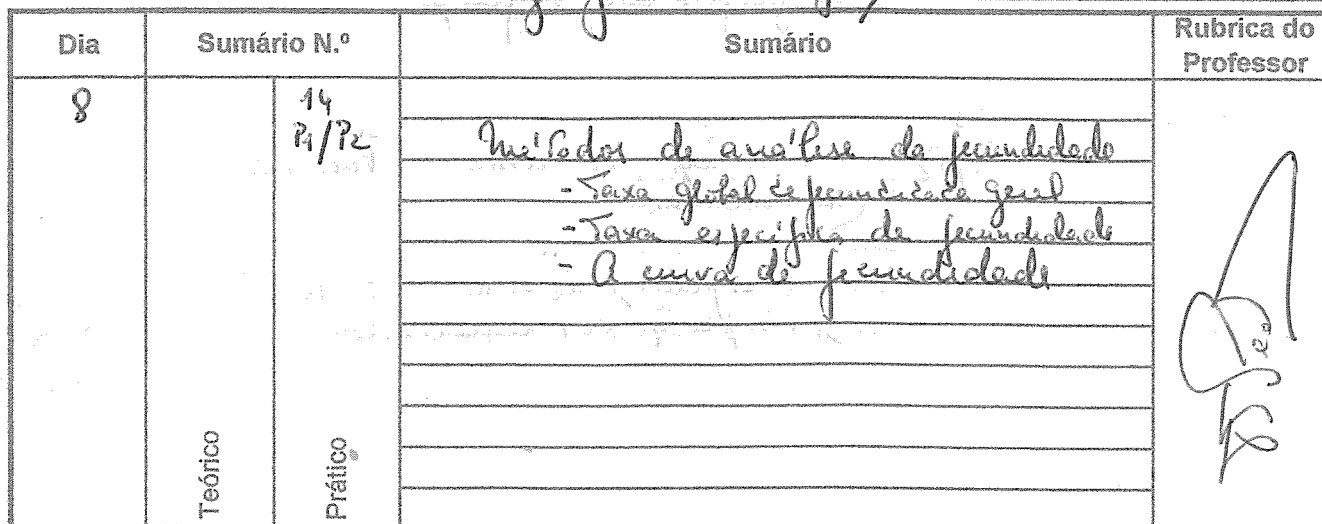 Dia Sumário N.º Sumário Rubrica do Professor
8 14
P1/P2
Métodos de análise da fecundidade
- Taxa global de fecundidade geral
- Taxa específica de fecundidade
- A curva de fecundidade
Teórico
Prático